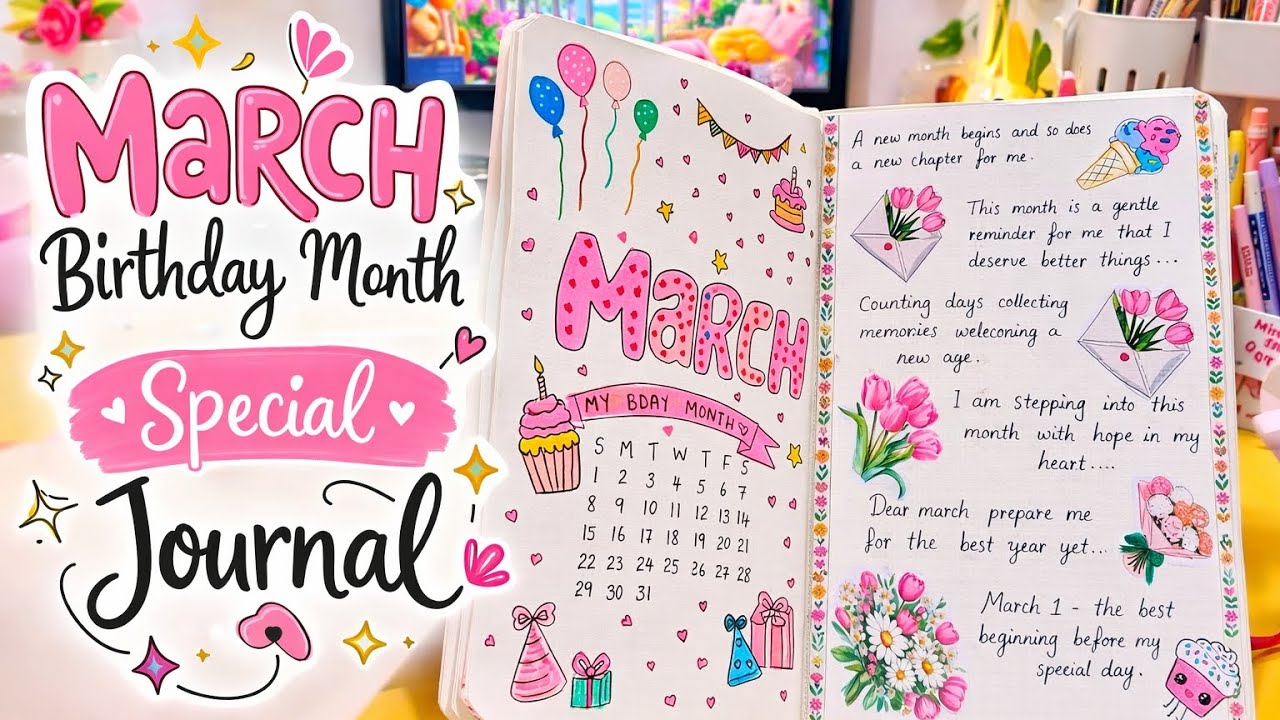 March
Birthday Month
Special
Journal
March
MY BDAY MONTH
S M T W T F S
1 2 3 4 5 6 7
8 9 10 11 12 13 14
15 16 17 18 19 20 21
22 23 24 25 26 27 28
29 30 31
A new month begins and so does
a new chapter for me.
This month is a gentle
reminder for me that I
deserve better things...
Counting days collecting
memories weleconing a
new age.
I am stepping into this
month with hope in my
heart....
Dear march prepare me
for the best year yet...
March 1 - the best
beginning before my
special day.